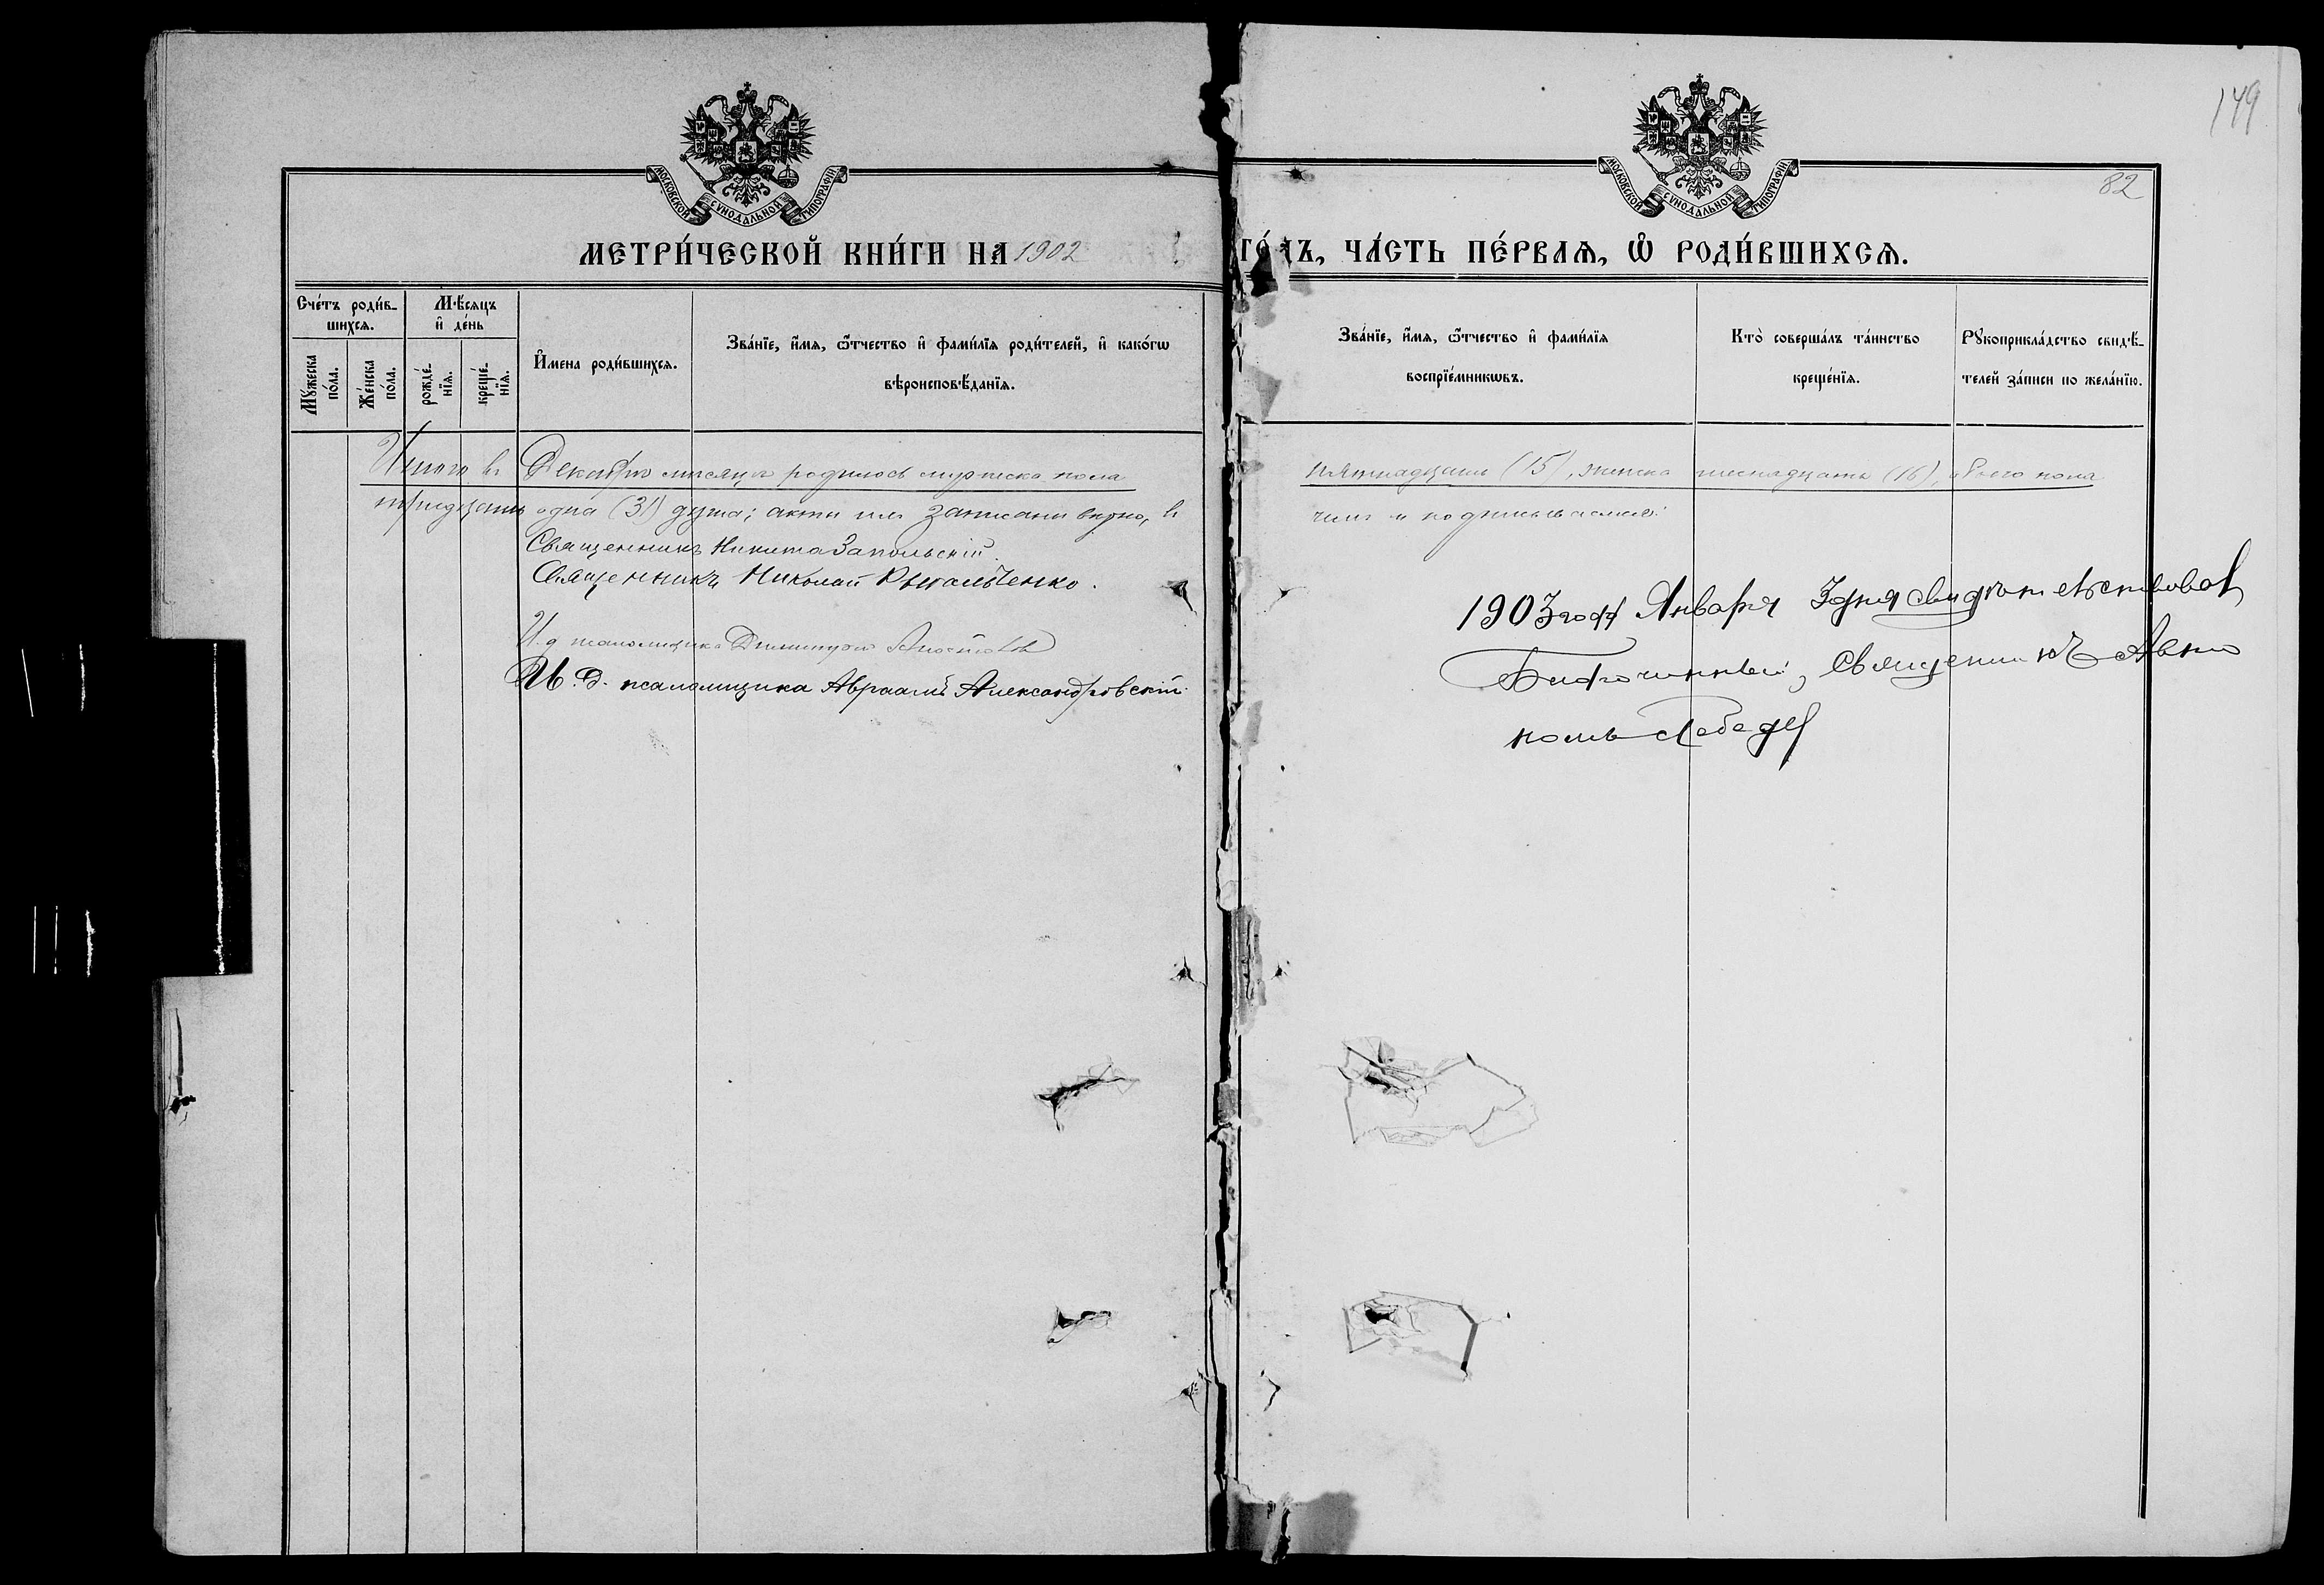 149
82
МОСКОВСКОЙ СѴНОДАЛЬНОЙ ТИПОГРАФІИ
МОСКОВСКОЙ СѴНОДАЛЬНОЙ ТИПОГРАФІИ
МЕТРИ́ЧЕСКОЙ КНИ́ГИ НА 1902 ГО́ДЪ, ЧА́СТЬ ПЕ́РВАѦ, Ѡ҆ РОДИ́ВШИХСѦ.
Сче́тъ роди́в-
шихсѧ.
Мѣ́сѧцъ
и҆ де́нь
Мꙋ́жеска
по́ла.
Же́нска
по́ла.
рожде́-
нїѧ.
креще́-
нїѧ.
И҆мена роди́вшихсѧ.
Зва́нїе, и҆́мѧ, ѻ҆́тчество и҆ фами́лїѧ роди́телей, и҆ како́гѡ
вѣроисповѣ́данїѧ.
Зва́нїе, и҆́мѧ, ѻ҆́тчество и҆ фами́лїѧ
воспрїе́мникѡвъ.
Кто̀ соверша́лъ та́инство
креще́нїѧ.
Рꙋкоприкла́дство свидѣ́-
телей за́писи по жела́нїю.
Итого въ Декабрѣ мѣсяцѣ родилось мужеска пола пятнадцать (15), женска шестнадцать (16), обоего пола
тридцать одна (31) душа; акты записаны вѣрно, въ чемъ и подписываемся:
Священникъ Никита Запольскій.
Священникъ Николай
И. д. псаломщика Димитрій
И. д. псаломщика Авраамій Александровскій.
1903 года Января 3 дня свидѣтельствовалъ
Благочинный, Священникъ
Лебедев